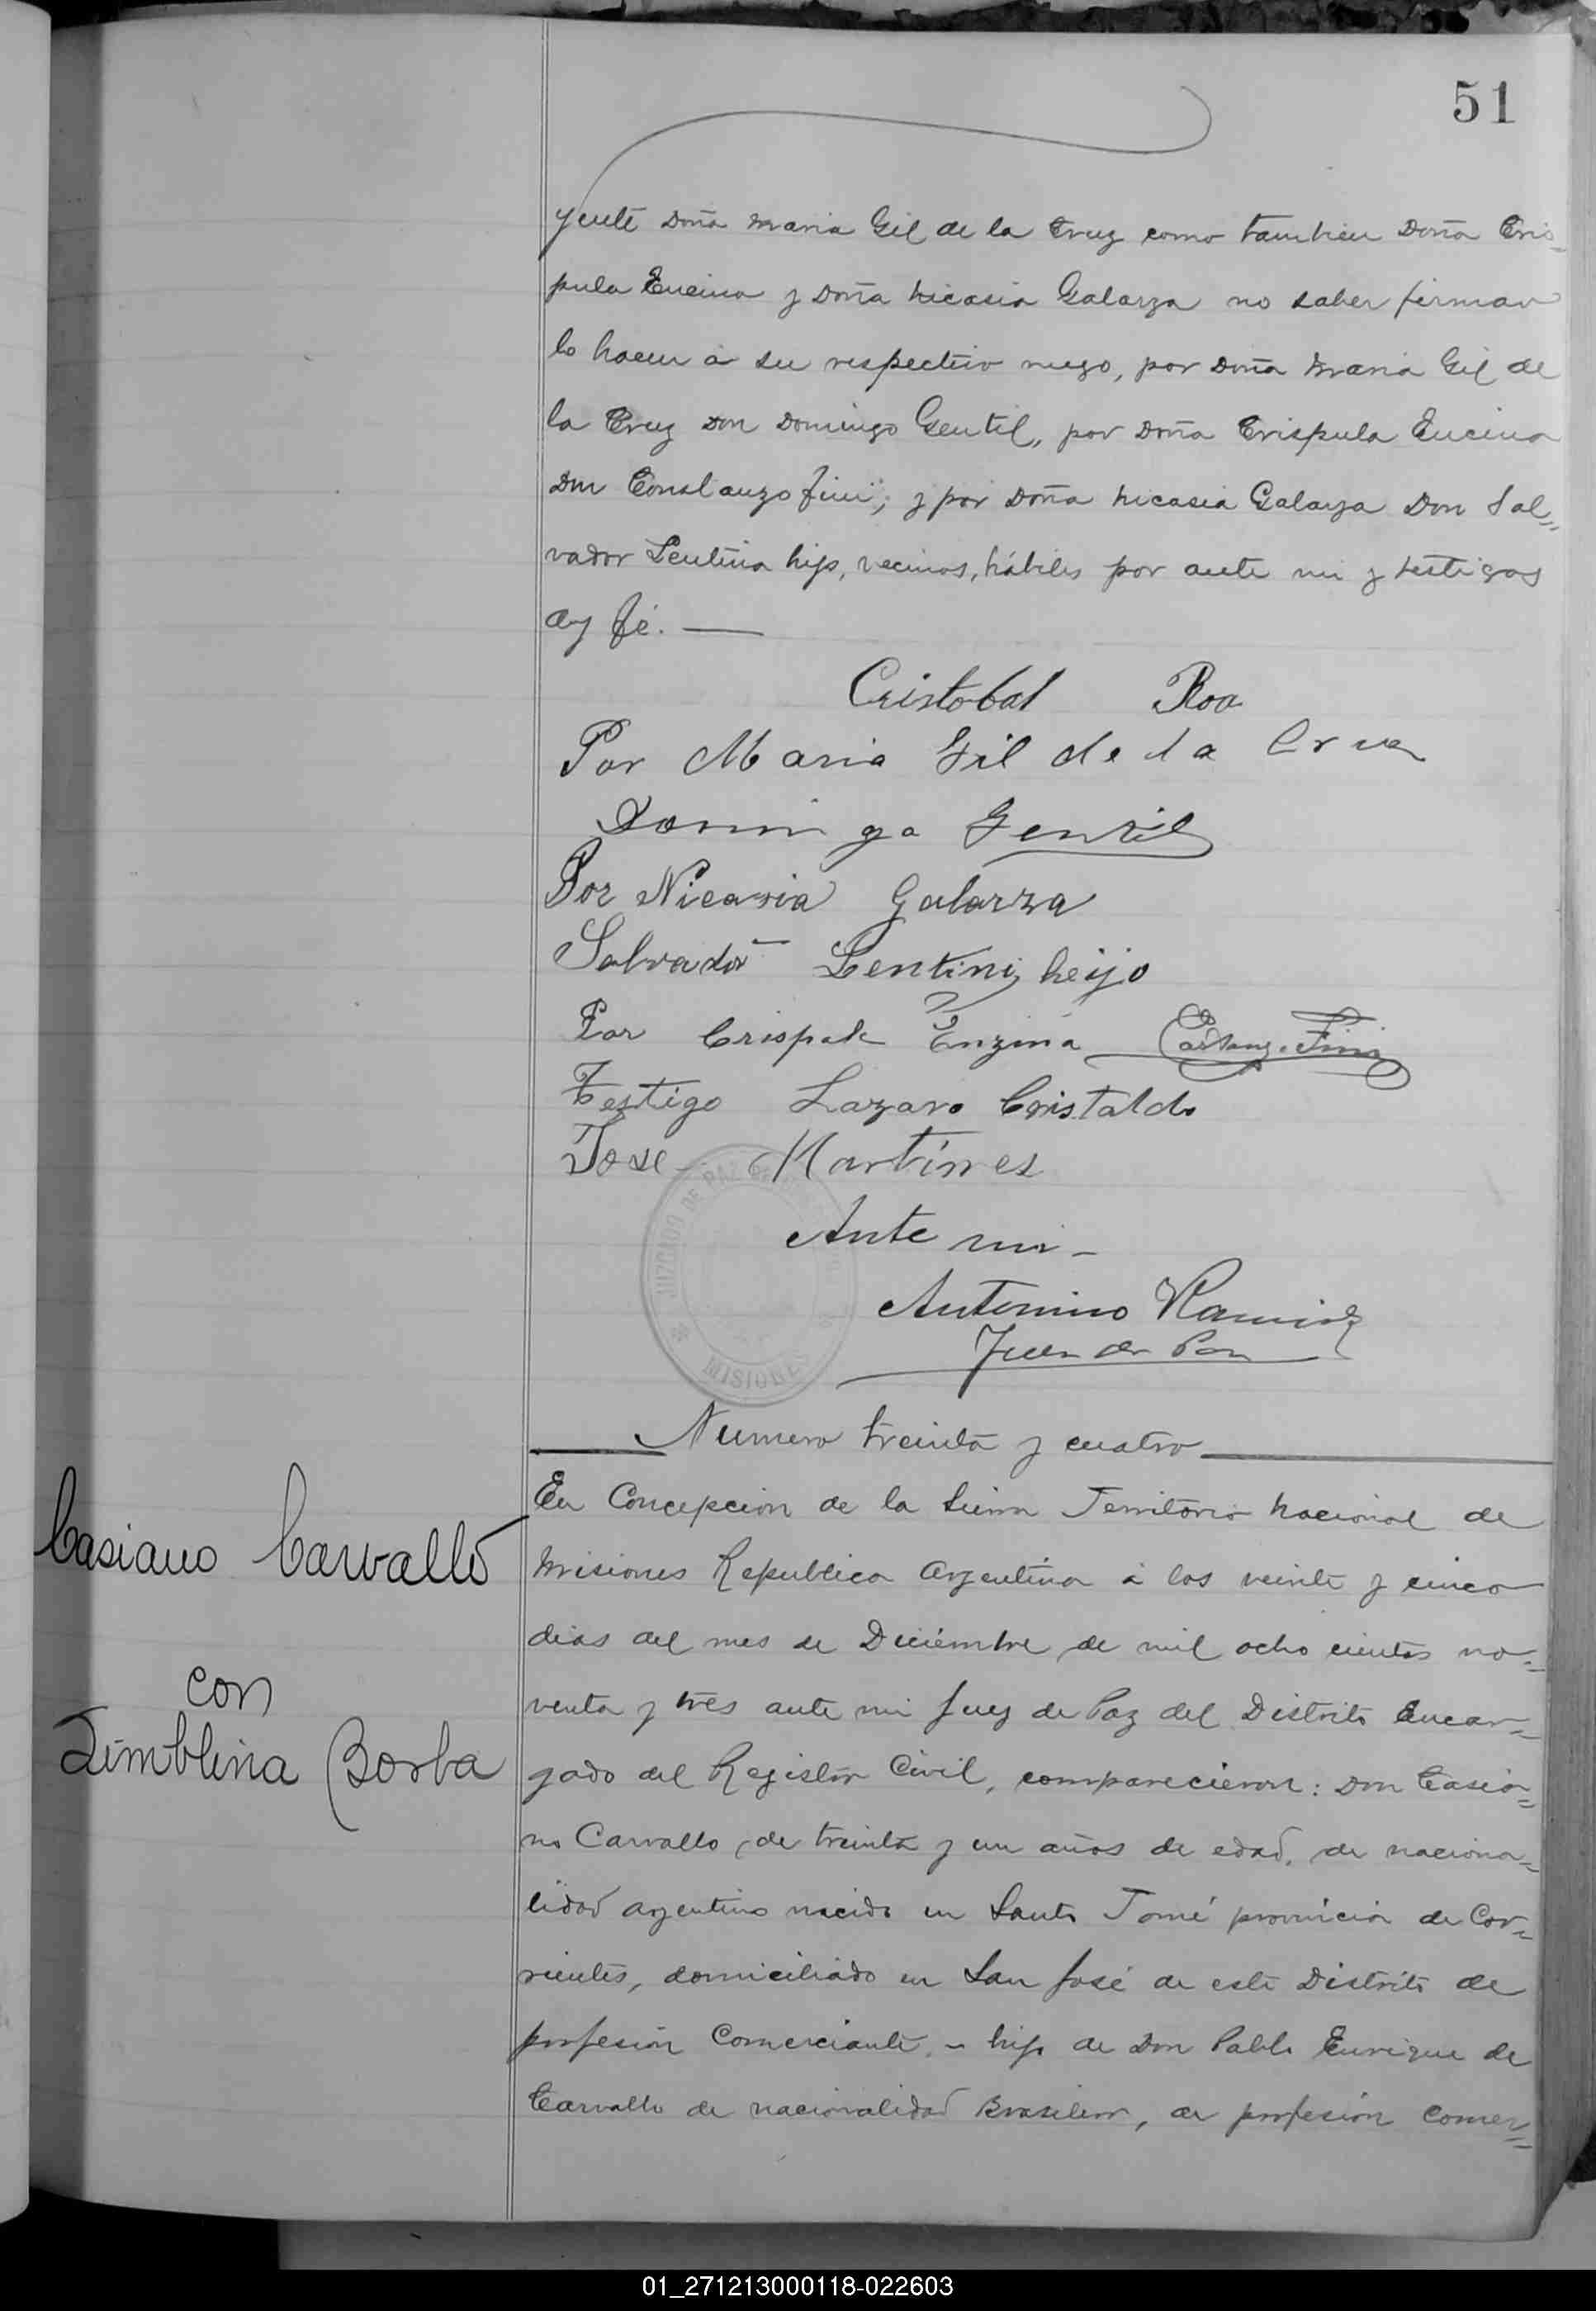 51
yente Doña Maria Gil de la Cruz como tambien Doña Cris=
pula Encina y Doña Nicasia Galarza no saber firmar
lo hacen á su respectivo ruego, por Doña Maria Gil de
la Cruz Don Domingo Gentil, por Doña Crispula Encina
Don Constanzo Fini; y por Doña Nicasia Galarza Don Sal=
vador Lentina hijo, vecinos, hábiles por ante mi y testigos
doy fé.
Cristobal Roa
Por Maria Gil de la Cruz
Domingo Gentil
Por Nicasia Galarza
Salvador Lentini heijo
Por Crispula Enzina Costanzo Fini
Testigo Lazaro Cristaldo
Jose Martines
JUZGADO DE PAZ
MISIONES
Ante mi
Antonino Ramirez
Juez de Paz
Numero treinta y cuatro
Casiano Carvallo
con
Zimblina Borba
En Concepcion de la Sierra Territorio Nacional de
Misiones Republica Argentina á los veinte y cinco
dias del mes de Diciembre de mil ocho cientos no=
venta y tres ante mi Juez de Paz del Distrito Encar=
gado del Registro Civil, comparecieron: Don Casia=
no Carvallo, de treinta y un años de edad, de naciona=
lidad argentino nacido en Santo Tomé provincia de Cor=
rientes, domiciliado en San José de este Distrito de
profesión Comerciante. - hijo de Don Pablo Enrique de
Carvallo de nacionalidad Brasilero, de profesión Comer=
01_271213000118-022603